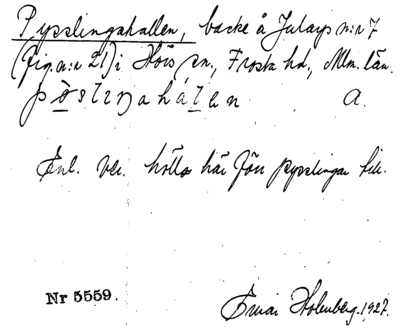 Pysslingahallen, backe å Jularps n:r 7
(fig. n:r 21) i Hörs sn., Frosta hd., Mlm. län.
pöslinahálen A.
Enl. ver. hölls här förr pysslingar till.
Nr 5559.
Einar Holmberg. 1927.